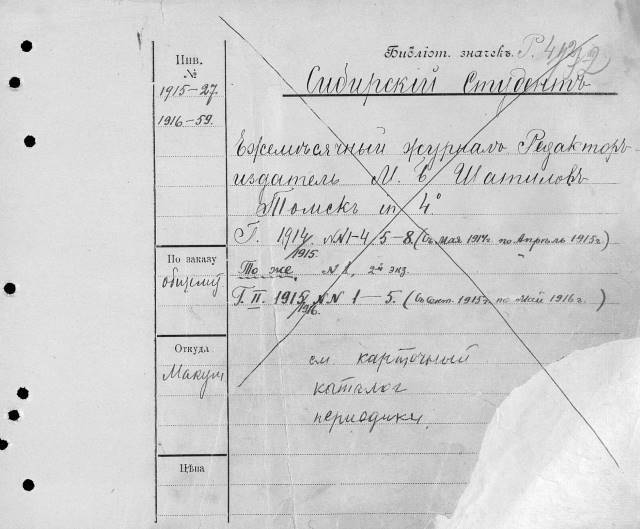 Библіот. значекъ. Р.
Инв.
№
1915-27.
1916-59.
Сибирскій Студентъ
Ежемѣсячный журналъ Редакторъ-
издатель М. Б. Шатиловъ
Томскъ in 4°
Г. I. 1914/1915. №№1-4, 5-8. (съ Мая 1914г. по Апрѣль 1915г)
То же. №1, 2й экз.
Г. II. 1915/1916. №№ 1-5. (съ Сент. 1915г. по Май 1916г.)
По заказу
Откуда
Макуш
Цѣна
см. карточный
каталог
периодики.